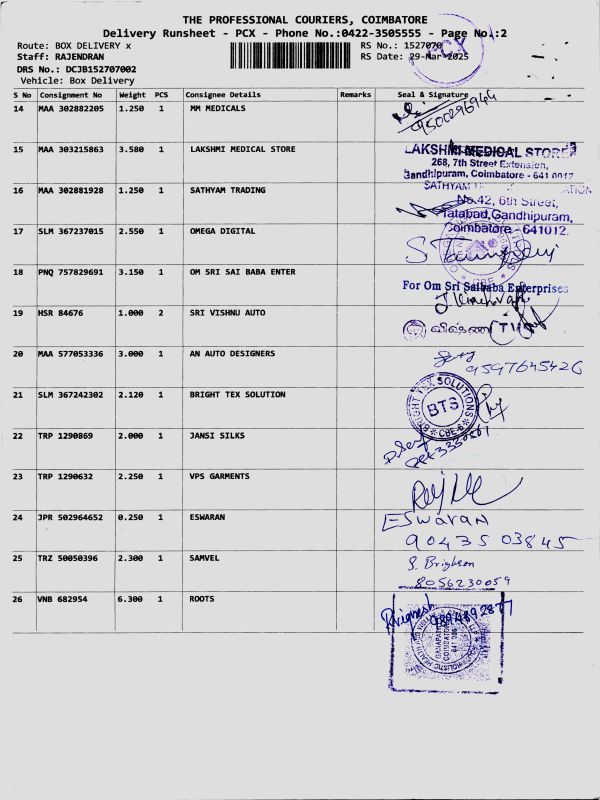 THE PROFESSIONAL COURIERS, COIMBATORE
Delivery Runsheet - PCX - Phone No.:0422-3505555 - Page No.:2
Route: BOX DELIVERY x
RS No.: 1527070
Staff: RAJENDRAN
RS Date: 29-Mar-2025
DRS No.: DCJB152707002
Vehicle: Box Delivery
PCX
S No Consignment No Weight PCS Consignee Details Remarks Seal & Signature
14 MAA 302882205 1.250 1 MM MEDICALS
9500296944
15 MAA 303215863 3.580 1 LAKSHMI MEDICAL STORE
LAKSHMI MEDICAL STORE
268, 7th Street Extension,
Gandhipuram, Coimbatore - 641 0012
16 MAA 302881928 1.250 1 SATHYAM TRADING
SATHYAM
No.42, 6th Street,
Tatabad, Gandhipuram,
Coimbatore - 641012.
17 SLM 367237015 2.550 1 OMEGA DIGITAL
18 PNQ 757829691 3.150 1 OM SRI SAI BABA ENTER
For Om Sri Saibaba Enterprises
19 HSR 84676 1.000 2 SRI VISHNU AUTO
20 MAA 577053336 3.000 1 AN AUTO DESIGNERS
9597645426
21 SLM 367242302 2.120 1 BRIGHT TEX SOLUTION
BRIGHT TEX SOLUTIONS
BTS
CBE-6
22 TRP 1290869 2.000 1 JANSI SILKS
23 TRP 1290632 2.250 1 VPS GARMENTS
24 JPR 502964652 0.250 1 ESWARAN
ESwaran
90435 03845
25 TRZ 50050396 2.300 1 SAMVEL
S. Brighson
8056230059
26 VNB 682954 6.300 1 ROOTS